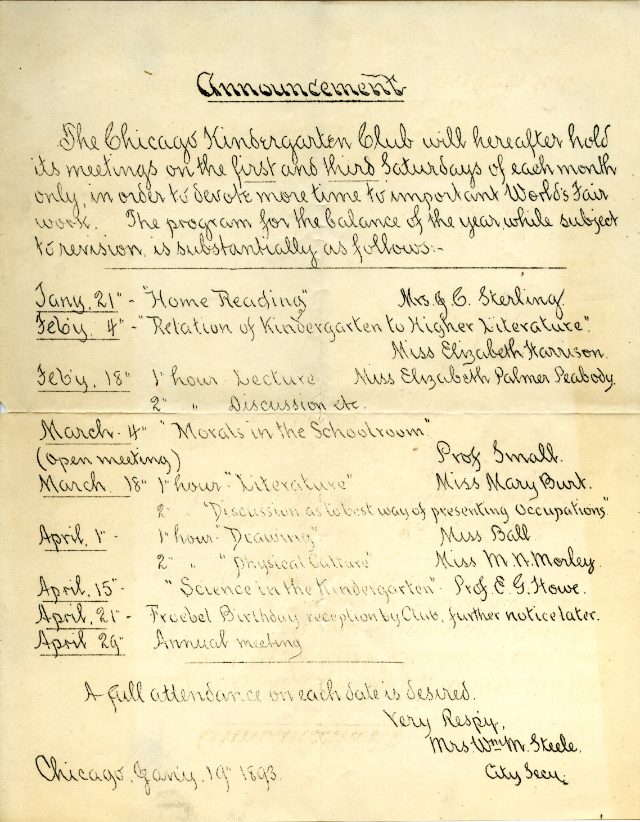 Announcement
The Chicago Kindergarten Club will hereafter hold
its meetings on the first and third Saturdays of each month
only, in order to devote more time to important World's Fair
work. The program for the balance of the year while subject
to revision, is substantially as follows:-
Jany, 21" - "Home Reading" Mrs J C. Sterling.
Feb'y. 4" - "Relation of Kindergarten to Higher Literature".
Miss Elizabeth Harrison.
Feb'y, 18" 1" hour - Lecture Miss Elizabeth Palmer Peabody.
2" " Discussion etc.
March - 4" "Morals in the Schoolroom"
(open meeting) Prof. Small.
March 18" 1" hour - "Literature" Miss Mary Burt.
2" " "Discussion as to best way of presenting Occupations"
April, 1" - 1" hour - Drawing" Miss Ball
2" " "Physical Culture" Miss M. N. Morley.
April, 15" - "Science in the Kindergarten" - Prof. E. G. Howe.
April, 21 - Froebel Birthday reception by Club, further notice later.
April 29" Annual meeting
A full attendance on each date is desired.
Very Respy,
Mrs Wm M. Steele,
City Secy.
Chicago, Jan'y, 19" 1893.